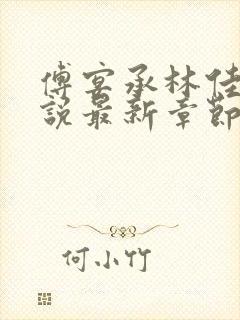 傅宴承林佳
說最新章節
何小竹